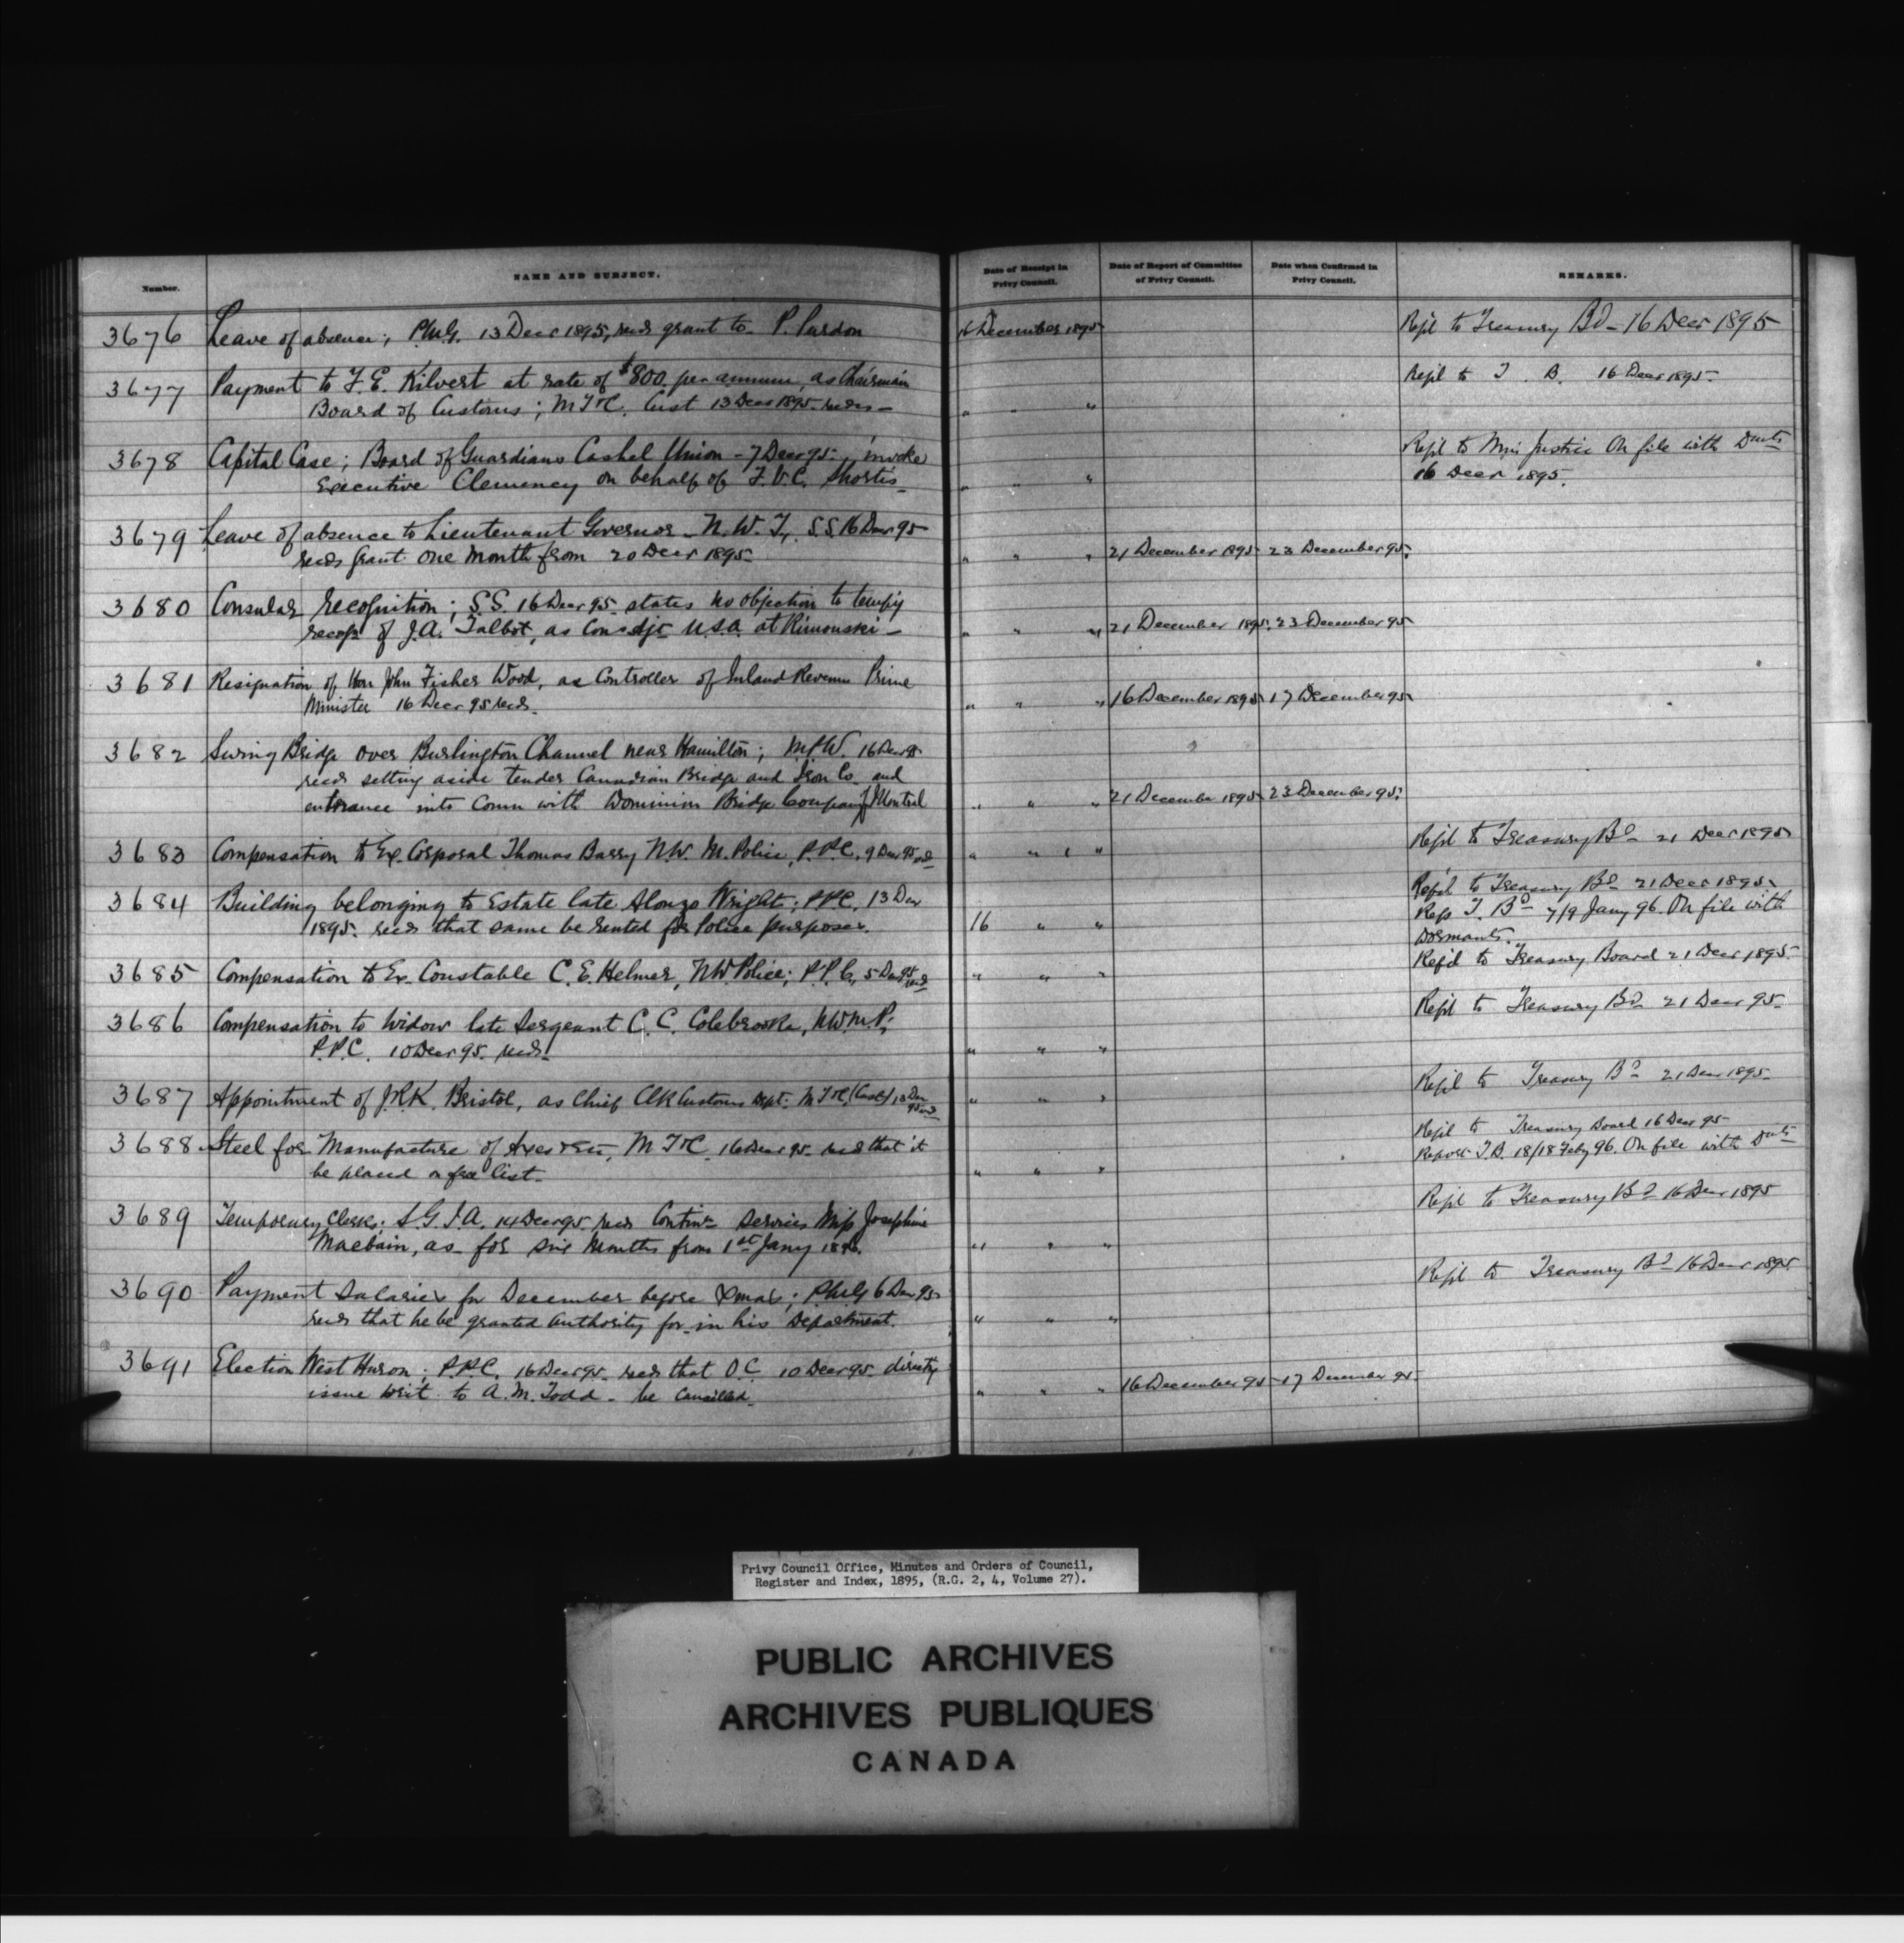 Number.
NAME AND SUBJECT.
Date of Receipt in Privy Council.
Date of Report of Committee of Privy Council.
Date when Confirmed in Privy Council.
REMARKS.
3676 Leave of absence; P.M.G. 13 Decr 1895, recds grant to P. Purdon 16 December 1895 Refd to Treasury Bd - 16 Decr 1895
3677 Payment to F. E. Kilvert at rate of $800. per annum, as Chairman Refd to T. B. 16 Decr 1895.
Board of Customs; M T & C. Cust 13 Decr 1895. recds - " " "
3678 Capital Case; Board of Guardians Cashel Union - 7 Decr 95 - invoke Refd to Min Justice On file with Dmts
Executive Clemency on behalf of F. V. C. Shortis - " " " 16 Decr 1895.
3679 Leave of absence to Lieutenant Governor - N. W. T., S.S. 16 Decr 95
recds grant one month from 20 Decr 1895 " " " 21 December 1895 23 December 95.
3680 Consular recognition; S.S. 16 Decr 95. states no objection to tempy
recogn of J.A. Talbot, as Con Agt U.S.A. at Rimouski - " " " 21 December 1895. 23 December 95
3681 Resignation of Hon John Fisher Wood, as Controller of Inland Revenue Prime
Minister 16 Decr 95 recds. " " " 16 December 1895 17 December 95
3682 Swing Bridge over Burlington Channel near Hamilton; M P W. 16 Decr 95
recds setting aside tender Canadian Bridge and Iron Co. and
entrance into Comn with Dominion Bridge Company of Montreal " " " 21 December 1895 23 December 95.
3683 Compensation to Ex. Corporal Thomas Barry N.W. M. Police, P.P.C. 9 Decr 95 recds " " " Refd to Treasury Bd 21 Decr 1895
3684 Building belonging to Estate late Alonzo Wright; P.P.C. 13 Decr Refd to Treasury Bd 21 Decr 1895.
1895. recds that same be rented for Police purposes. 16 " " Rep T. Bd 7/9 Jany 96. On file with
Dormants.
3685 Compensation to Ex. Constable C. E. Helmer, NW Police; P.P.C. 5 Decr 95 recds " " " Refd to Treasury Board 21 Decr 1895.
3686 Compensation to Widow late Sergeant C. C. Colebrooke, N.W.M.P. Refd to Treasury Bd 21 Decr 95
P.P.C. 10 Decr 95. recds. " " "
3687 Appointment of J.R.K. Bristol, as Chief Clk Customs Dept. M T & C (Cust) 13 Decr 95 recds " " " Refd to Treasury Bd 21 Decr 1895
3688 Steel for Manufacture of Axes &c, M T & C. 16 Decr 95 - recds that it Refd to Treasury Board 16 Decr 95
be placed on free list. " " " Report T.B. 18/18 Feby 96. On file with Dmts
3689 Temporary Clerks; S.G.I.A. 14 Decr 95. recds Contince Services Miss Josephine Refd to Treasury Bd 16 Decr 1895
Macbain, as for six Months from 1st Jany 1896. " " "
3690 Payment Salaries for December before Xmas; P.M.G. 6 Decr 95 Refd to Treasury Bd 16 Decr 1895.
recds that he be granted authority for in his Department. " " "
3691 Election West Huron; P.P.C. 16 Decr 95. recds that O.C. 10 Decr 95 directg
issue writ to A. M. Todd - be cancelled. " " " 16 December 95 - 17 December 95.
Privy Council Office, Minutes and Orders of Council,
Register and Index, 1895, (R.G. 2, 4, Volume 27).
PUBLIC ARCHIVES
ARCHIVES PUBLIQUES
CANADA